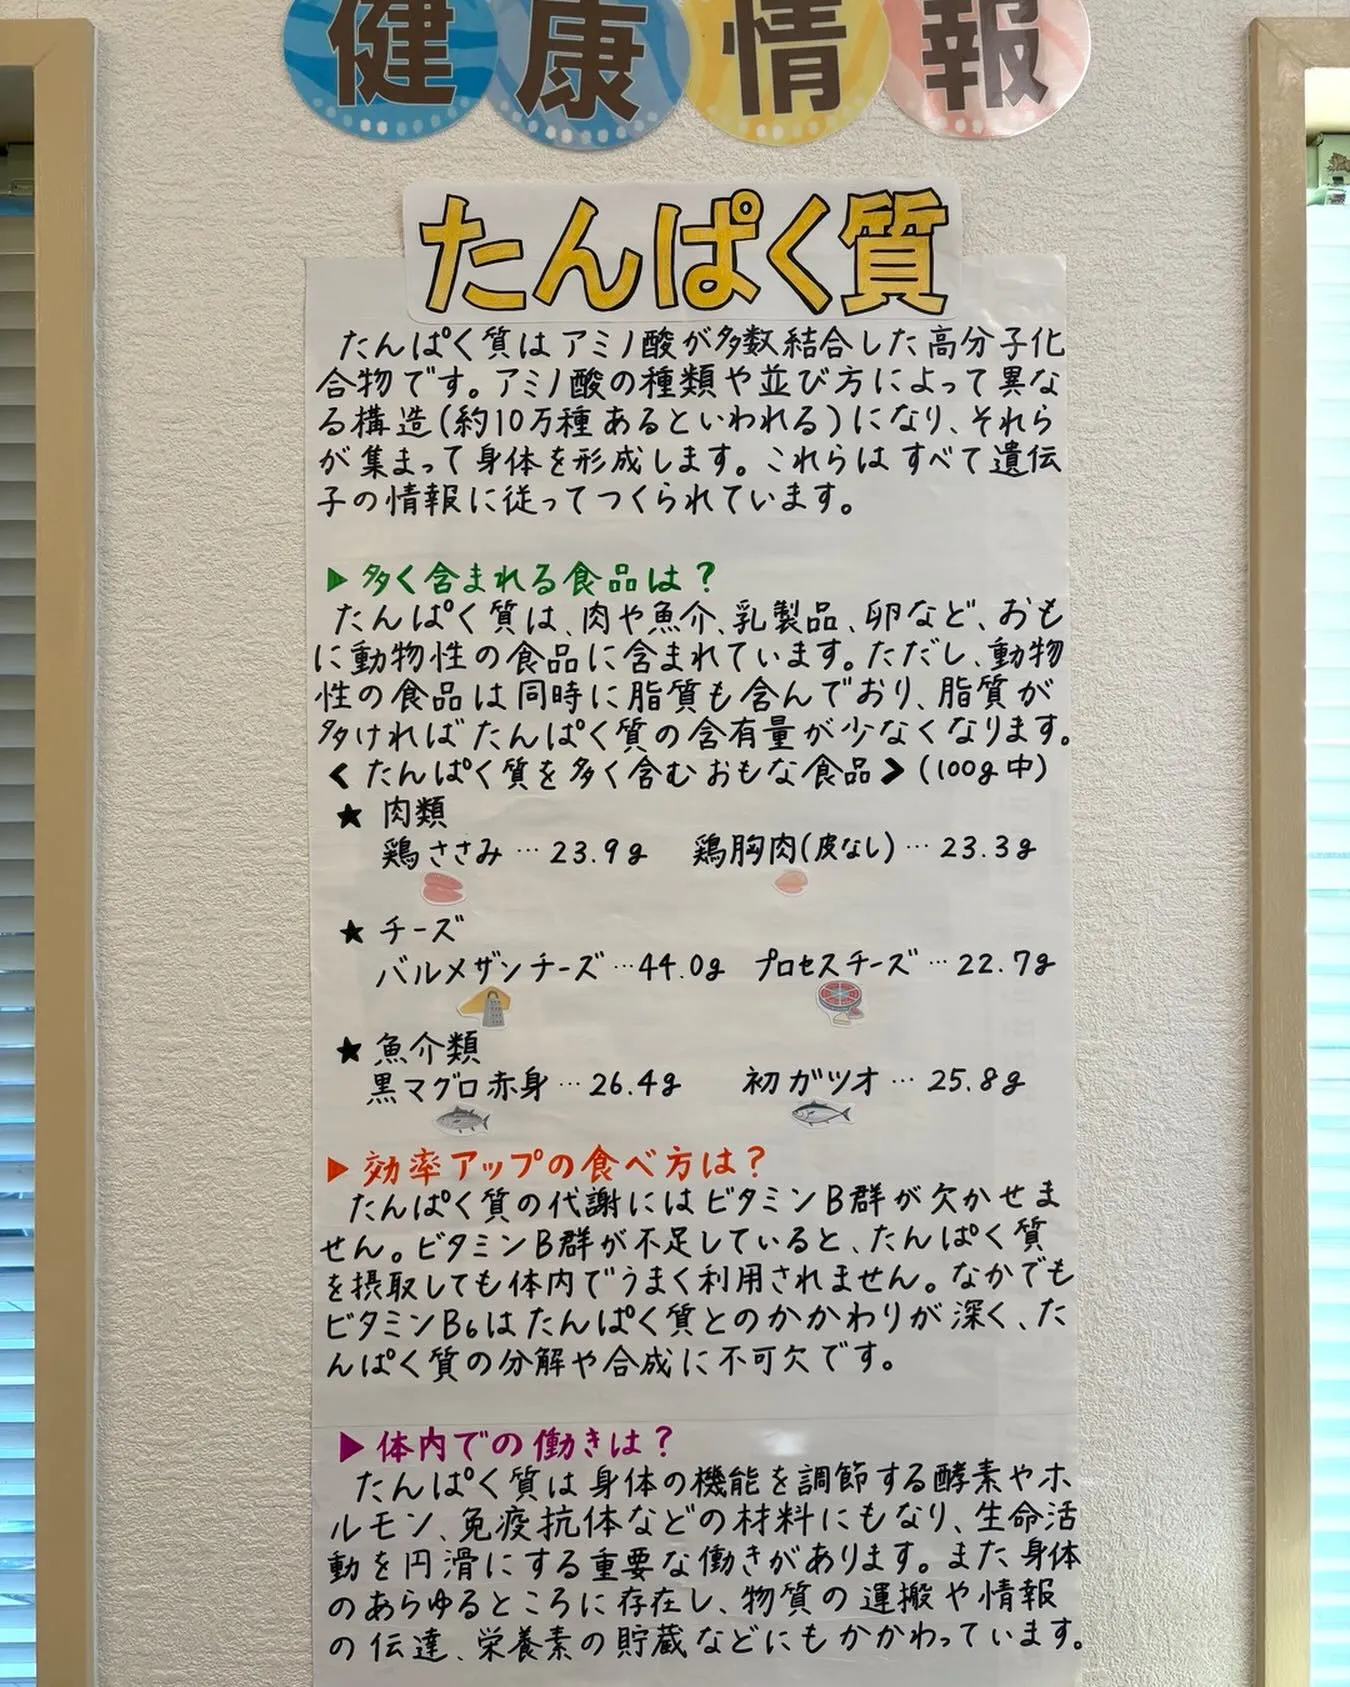 健康情報
たんぱく質
たんぱく質はアミノ酸が多数結合した高分子化
合物です。アミノ酸の種類や並び方によって異な
る構造(約10万種あるといわれる)になり、それら
が集まって身体を形成します。これらはすべて遺伝
子の情報に従ってつくられています。
▶多く含まれる食品は？
たんぱく質は、肉や魚介、乳製品、卵など、おも
に動物性の食品に含まれています。ただし、動物
性の食品は同時に脂質も含んでおり、脂質が
多ければたんぱく質の含有量が少なくなります。
<たんぱく質を多く含むおもな食品>(100g中)
★ 肉類
鶏ささみ…23.9g 鶏胸肉(皮なし)…23.3g
★ チーズ
パルメザンチーズ…44.0g プロセスチーズ…22.7g
★ 魚介類
黒マグロ赤身…26.4g 初ガツオ…25.8g
▶効率アップの食べ方は？
たんぱく質の代謝にはビタミンB群が欠かせま
せん。ビタミンB群が不足していると、たんぱく質
を摂取しても体内でうまく利用されません。なかでも
ビタミンB6はたんぱく質とのかかわりが深く、た
んぱく質の分解や合成に不可欠です。
▶体内での働きは？
たんぱく質は身体の機能を調節する酵素やホ
ルモン、免疫抗体などの材料にもなり、生命活
動を円滑にする重要な働きがあります。また身体
のあらゆるところに存在し、物質の運搬や情報
の伝達、栄養素の貯蔵などにもかかわっています。